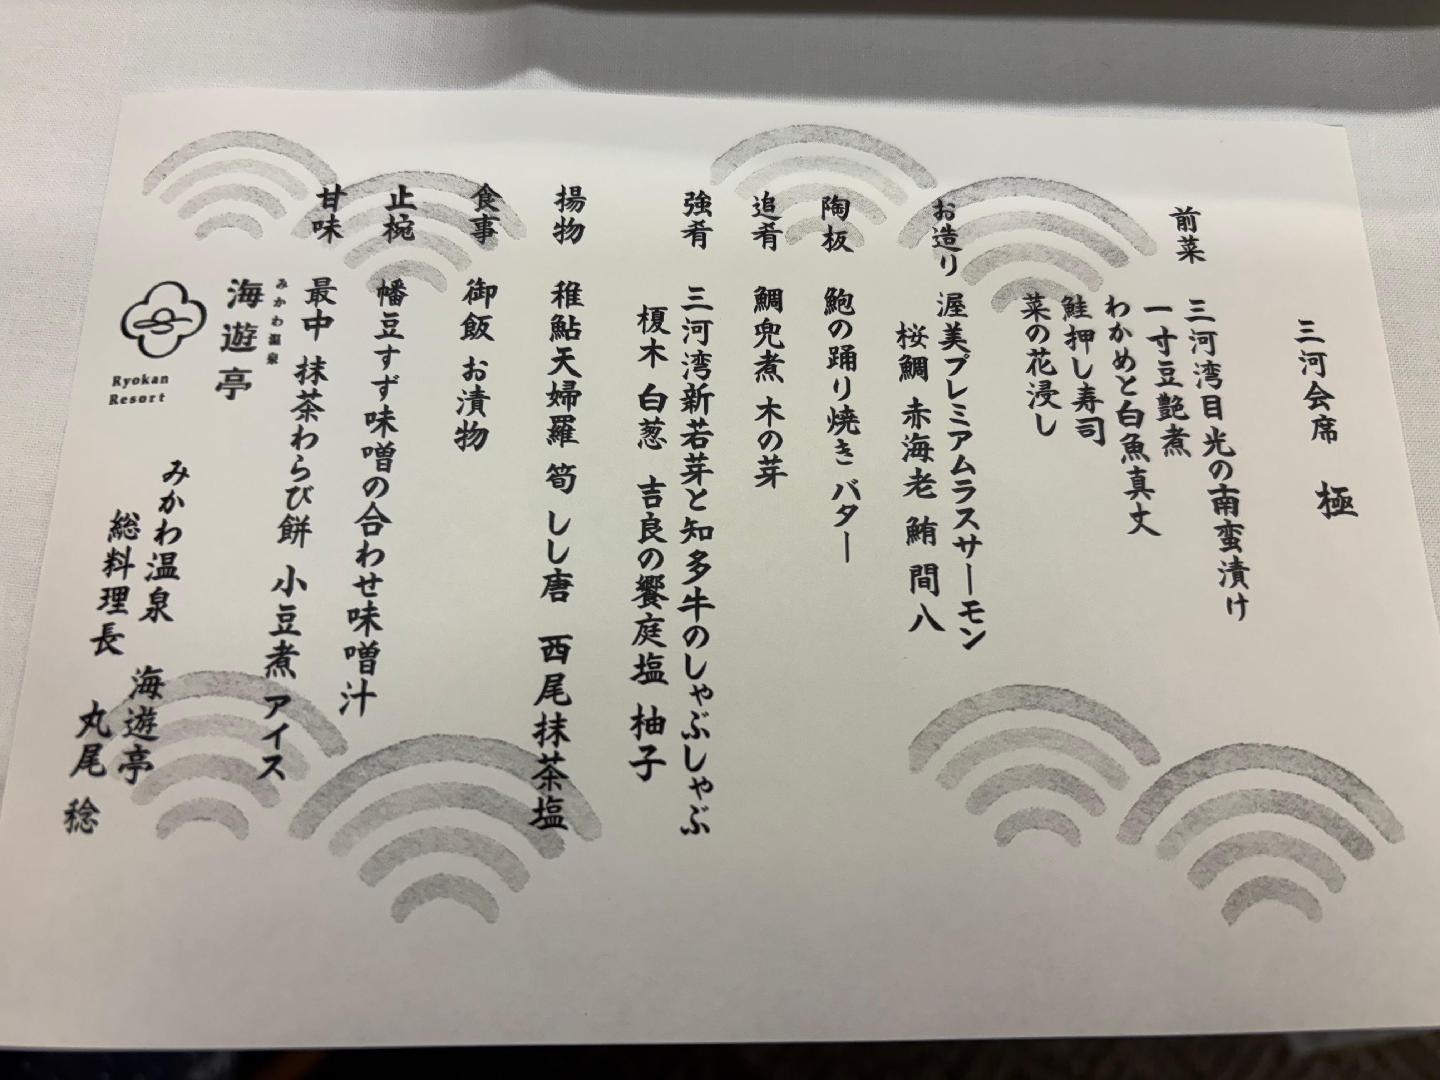 三河会席 極
前菜
三河湾目光の南蛮漬け
一寸豆艶煮
わかめと白魚真丈
鮭押し寿司
菜の花浸し
お造り 渥美プレミアムラスサーモン
桜鯛 赤海老 鮪 間八
陶板 鮑の踊り焼き バター
追肴 鯛兜煮 木の芽
強肴 三河湾新若芽と知多牛のしゃぶしゃぶ
榎木 白葱 吉良の饗庭塩 柚子
揚物 稚鮎天婦羅 筍 しし唐 西尾抹茶塩
食事 御飯 お漬物
止椀 幡豆すず味噌の合わせ味噌汁
甘味 最中 抹茶わらび餅 小豆煮 アイス
みかわ温泉
海遊亭
Ryokan
Resort
みかわ温泉 海遊亭
総料理長 丸尾 稔